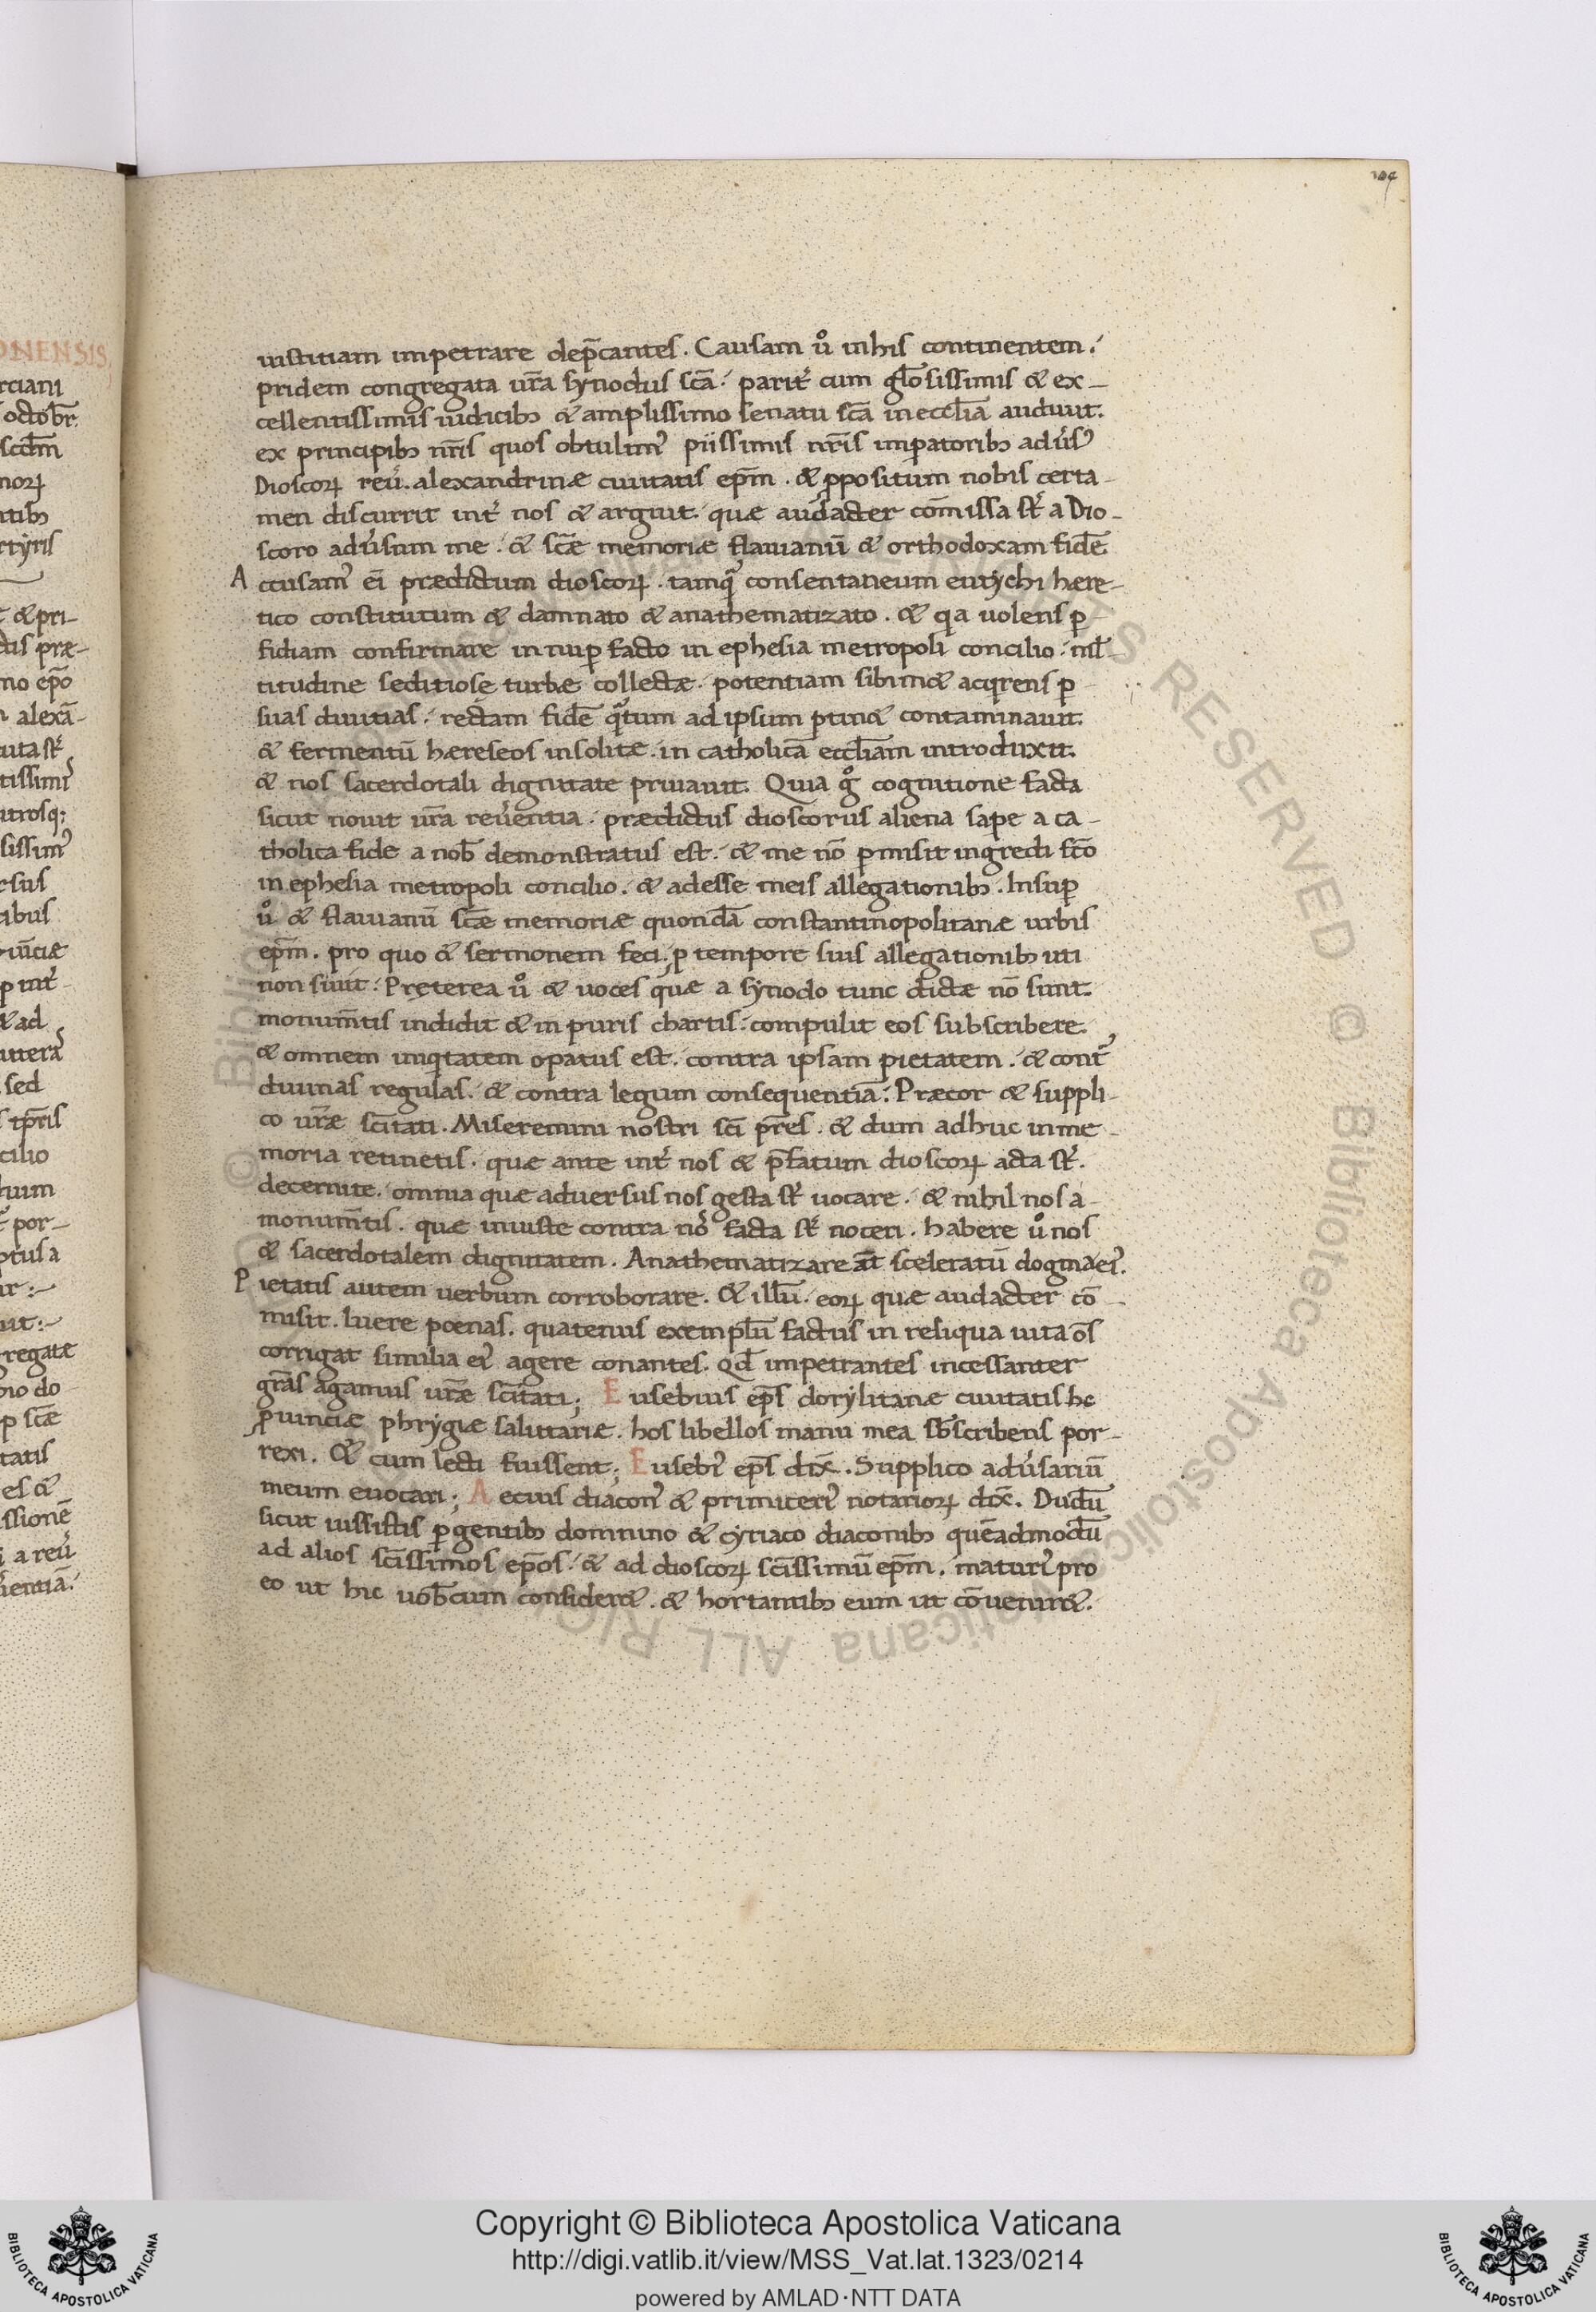 104
ONENSIS
rciani
octobr̅.
scd̅m
norꝝ
ntibꝫ
rtyris
& pri-
dis præ-
mo ep̅o
alexā-
tissimi
utrosq;
sissim᾽
rsus
ibus
uīciæ
p int̅
& ad
sed
tp̅ris
cilio
por-
otus a
regate
bio do-
p sc̅æ
tatis
es &
ssionē
a reu̅
uentiā.
iustitiam impetrare dep̅cantes. Causam ů in his continentem.
pridem congregata ur̅a synodus sc̅a. parit̅ cum gl̅osissimis & ex-
cellentissimis iudicibꝫ & amplissimo senatu sc̅a in eccl̅ia audiuit.
ex principibꝫ nr̅is quos obtulim᾽ piissimis nr̅is imperatoribꝫ aduers᾽
Dioscorꝝ reu̅. alexandrinæ ciuitatis ep̅m. & ꝓpositum nobis certa-
men discurrit int̅ nos & arguit. quæ audacter com̅issa st̅ a Dio-
scoro adu̅sum me. & sc̅æ memoriæ flauianū & orthodoxam fidē.
Accusam᾽ ei᾽ prædictum dioscorꝝ. tamq̅ consentaneum eutychi here-
tico constitutum & damnato & anathematizato. & qa uolens ꝑ-
fidiam confirmare in nuꝑ facto in ephesia metropoli concilio. ml̅-
titudine seditiose turbæ collectæ. potentiam sibim& acqrens ꝑ
suas diuitias. rectam fidē qͣtum ad ipsum ꝑtin& contaminauit.
& fermentū hæreseos insolitæ. in catholicā eccl̅iam introduxit.
& nos sacerdotali dignitate priuauit. Quia g̊ cognitione facta
sicut nouit ur̅a reu̅entia. prædictus dioscorus aliena sape a ca-
tholica fide a nob̅ demonstratus est. & me nō ꝑmisit ingredi fc̅o
in ephesia metropoli concilio. & adesse meis allegationibꝫ. Insuꝑ
ů & flauianū sc̅æ memoriæ quondā constantinopolitanæ urbis
ep̅m. pro quo & sermonem feci. ꝑ tempore suis allegationibꝫ uti
non siuit. Pręterea ů & uoces quæ a synodo tunc dictæ nō sunt.
monum̅tis indidit & in puris chartis. compulit eos subscribere.
& omnem iniqtatem opatus est. contra ipsam pietatem. & contͣ
diuinas regulas. & contra legum consequentiā. Præcor & suppli-
co ur̅æ sc̅itati. Miseremini nostri sc̅i pr̅es. & dum adhuc in me-
moria retinetis. quæ ante int̅ nos & p̅fatum dioscorꝝ acta st̅.
decernite. omnia quæ aduersus nos gesta st̅ uocare. & nihil nos a
monum̅tis. quæ iniuste contra no᾽ facta st̅ noceri. habere ů nos
& sacerdotalem dignitatem. Anathematizare at̅ sceleratū dogma ei᾽.
Pietatis autem uerbum corroborare. & illū. eorꝝ quæ audacter cō-
misit. luere poenas. quatenus exemplū factus in reliqua uita o̅s
corrigat similia ei᾽ agere conantes. Qd̅ impetrantes incessanter
gr̅as agamus ur̅æ sc̅itati; Eusebius ep̅s dorylitanæ ciuitatis hc
ꝓuinciæ phrygiæ salutariæ. hos libellos manu mea sb̅scribens por-
rexi. & cum lecti fuissent; Euseb᾽ ep̅s dix̅. Supplico adu̅sariū
meum euocari; Aecius diacon᾽ & primiceri᾽ notariorꝝ dix̅. Dudū
sicut iussistis ꝑgentibꝫ domnino & cyriaco diaconibꝫ quēadmodū
ad alios sc̅issimos ep̅os. & ad dioscorꝝ sc̅issimū ep̅m. matur᾽ pro
eo ut hic uob̅cum consider&. & hortantibꝫ eum ut cōuenir&.
© Biblioteca Apostolica Vaticana ALL RIGHTS RESERVED
Copyright © Biblioteca Apostolica Vaticana
http://digi.vatlib.it/view/MSS_Vat.lat.1323/0214
powered by AMLAD·NTT DATA
BIBLIOTECA APOSTOLICA VATICANA
BIBLIOTECA APOSTOLICA VATICANA